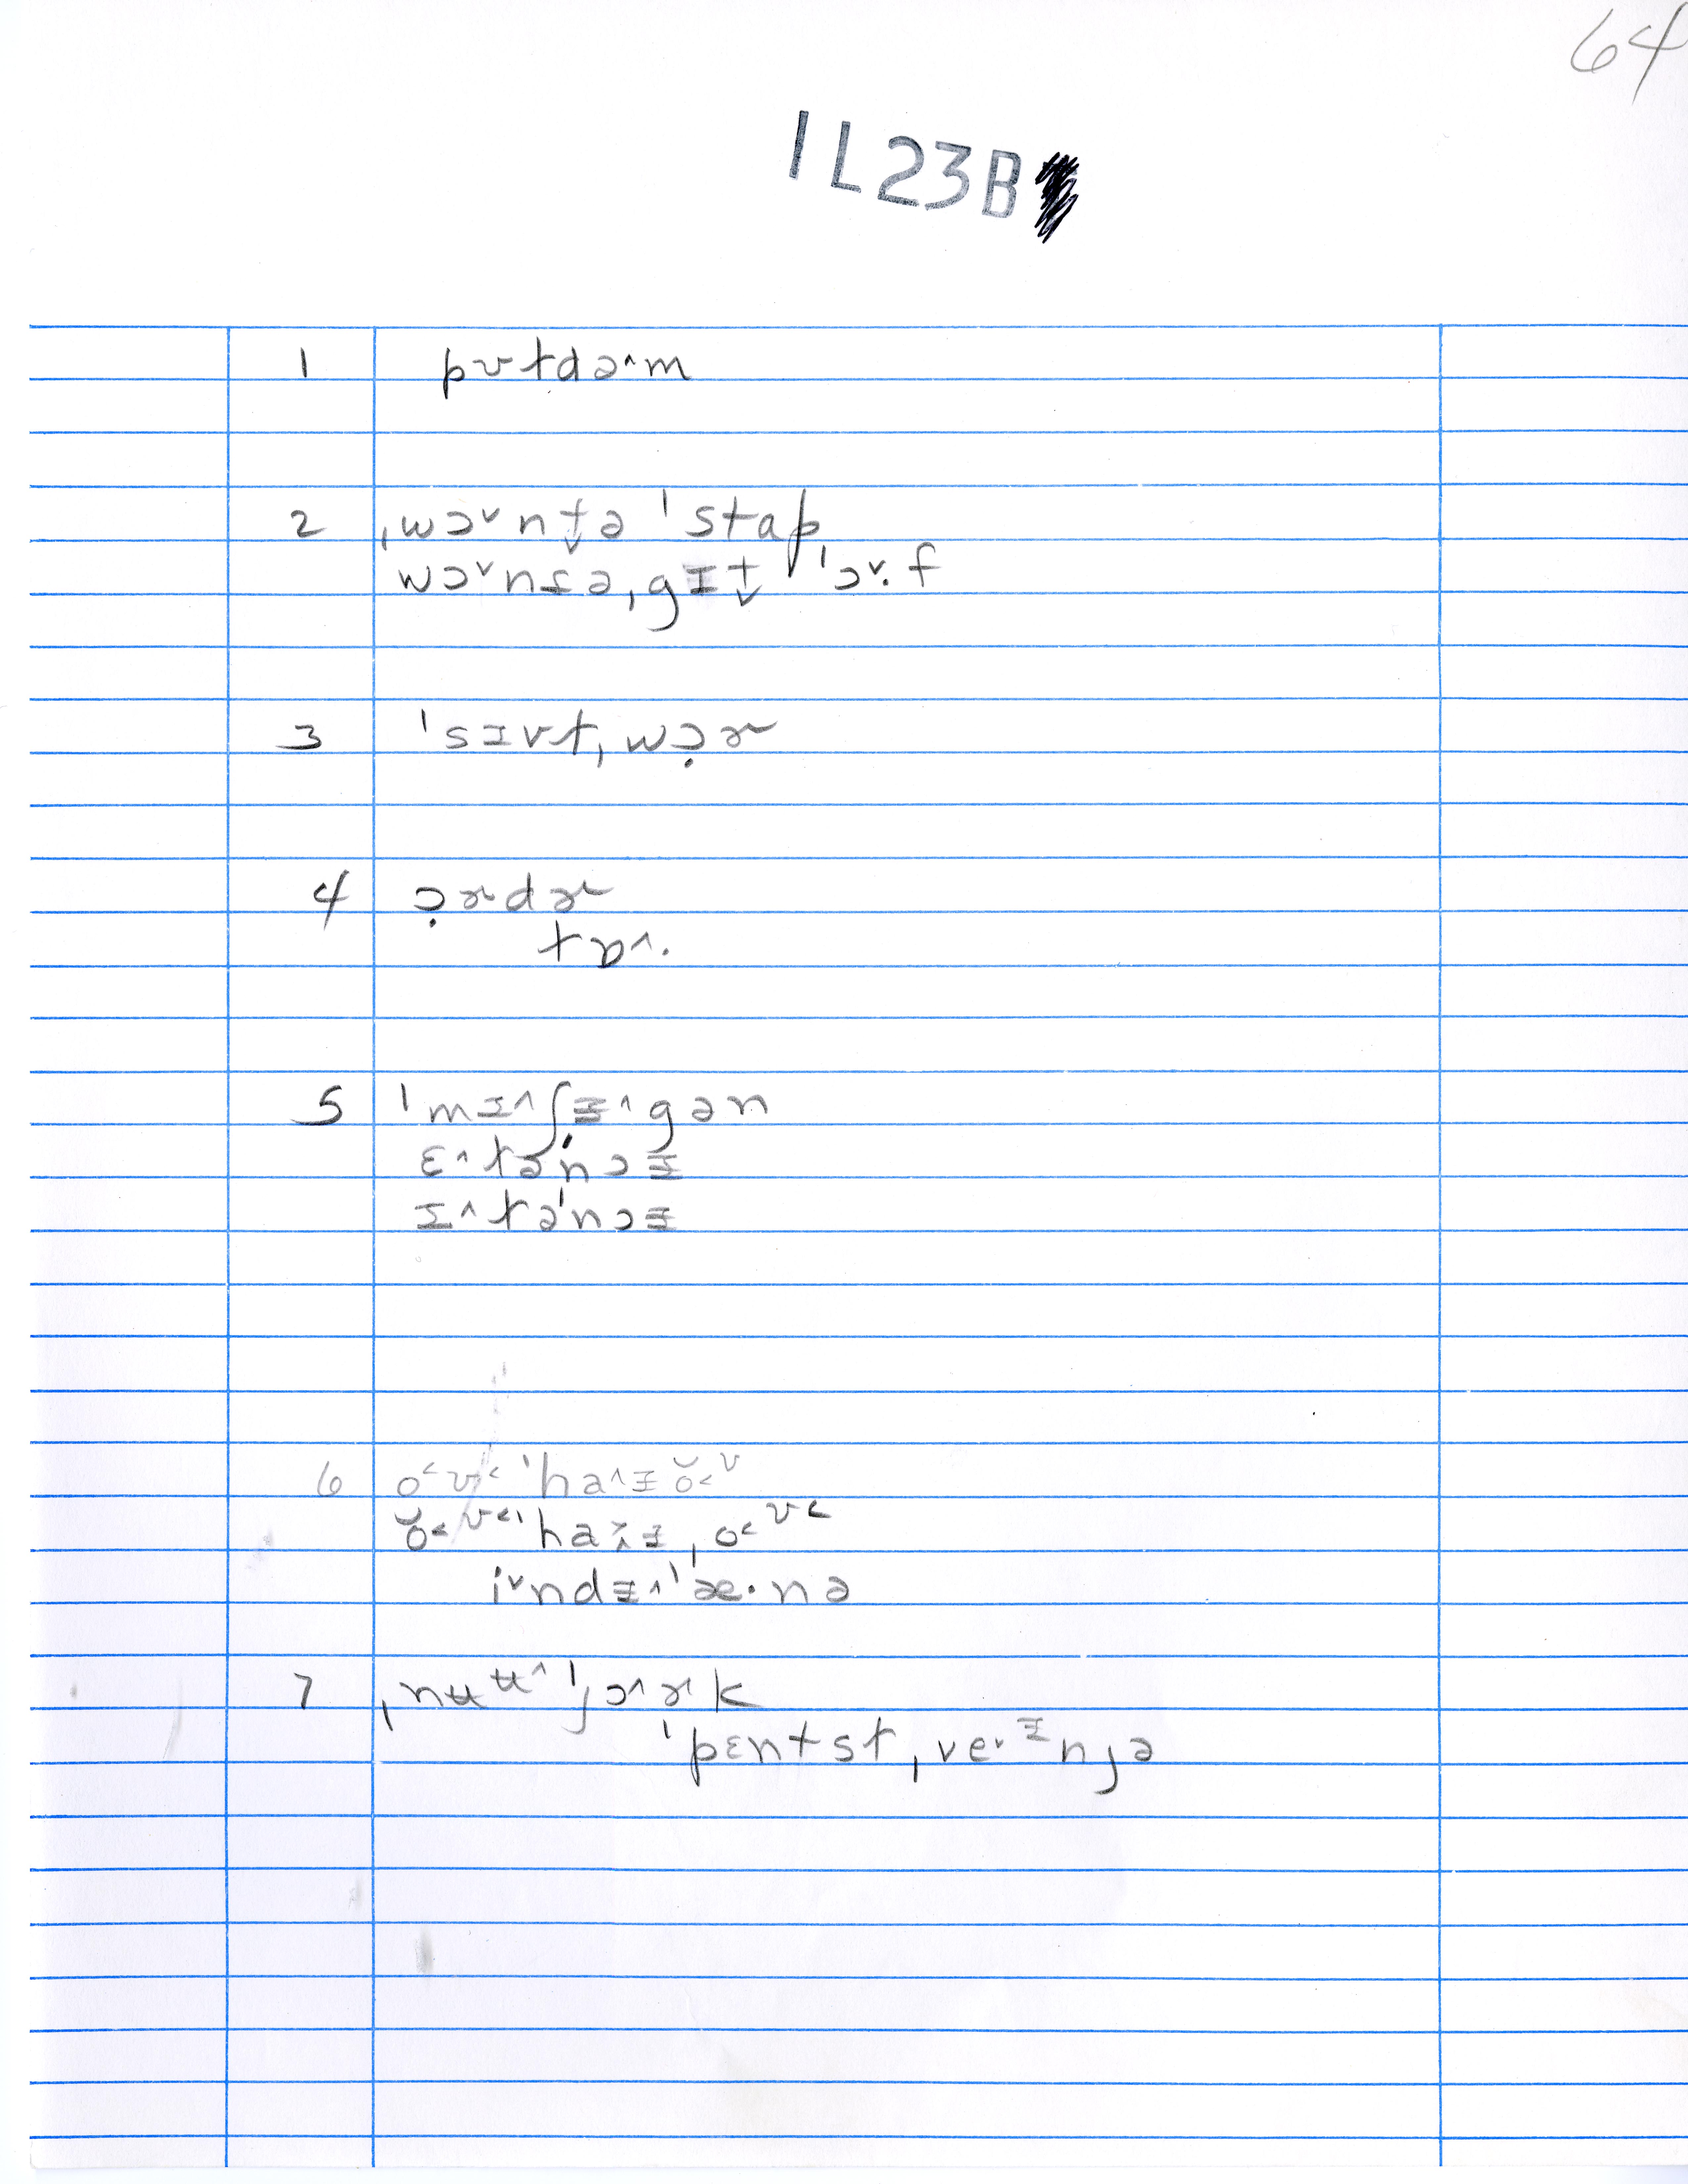 64
1L23B
1 pʊtdə^m
2 ˌwɔ˅nt̬ə ˈstap
wɔ˅nɾə ˌgɪt̬ ˈɔ˅·f
3 ˈsɪvt ˌwɔ̣ɚ
4 ɔ̣ɚdɚ
tɒ^·
5 ˈmɪ^ʃɨ^gən
ɛ^təˈnɔɨ
ɪ^təˈnɔɨ
6 o˂ʊ˂ ˈha^ɨŏ˂ʊ
ŏ˂ʊ˂ ˈha^ɨ ˌo˂ʊ˂
i˅ndɨ^ˈæ·nə
7 ˌnʉʉ^ ˈjɔ^ɚk
ˈpɛntst ˌve˅ɨnjə